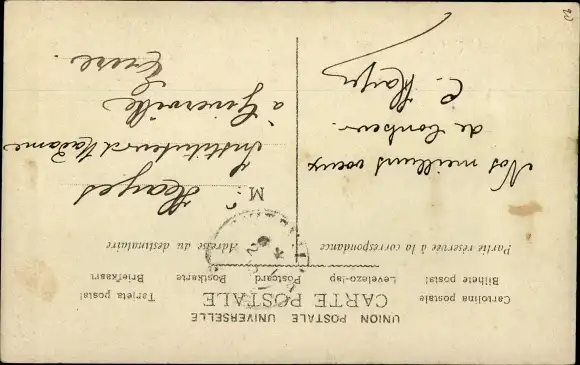 UNION POSTALE UNIVERSELLE
CARTE POSTALE
Cartolina postale Tarjeta postal
Bilhete postal Levelezo-lap Postcard Postkarte Briefkaart
Partie réservée à la correspondance
Adresse du destinataire
Nos meilleurs vœux
de bonheur.
C. Hayes
M. Hayes
Instituteur et Madame
à Giverville
Eure.